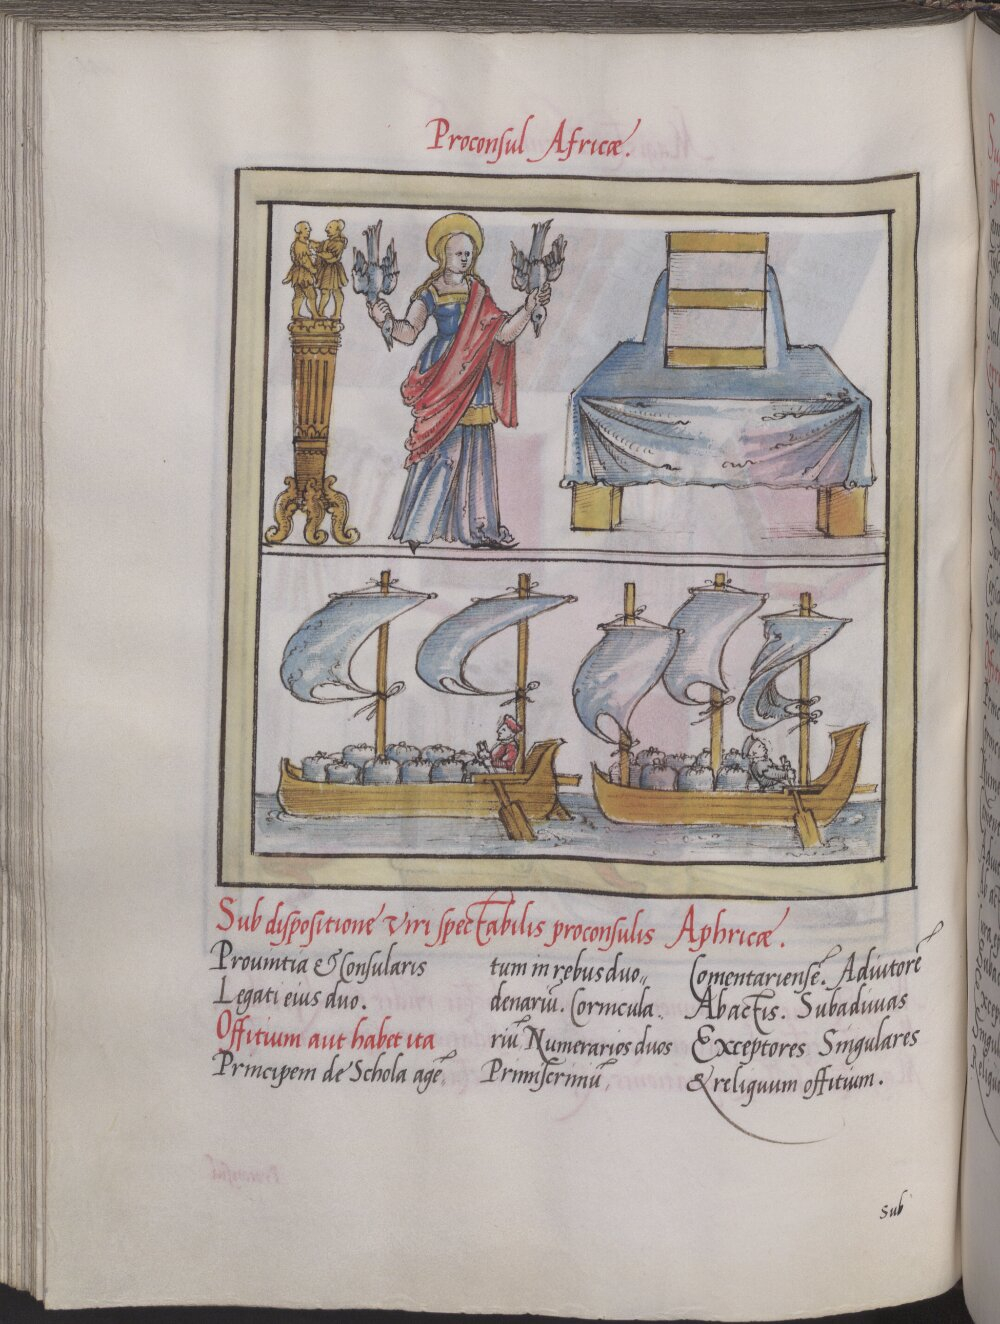 Proconsul Africæ.
Sub dispositione viri spectabilis proconsulis Aphricæ.
Prouintia & Consularis
Legati eius duo.
Offitium aut habet ita
Principem de Schola agẽ
tum in rębus duo„
denariũ. Cornicula
riũ Numerarios duos
Primiscriniũ,
Comentariensẽ. Adiutorẽ
Abactis. Subadiuuas
Exceptores Singulares
& reliquum offitium.
sub